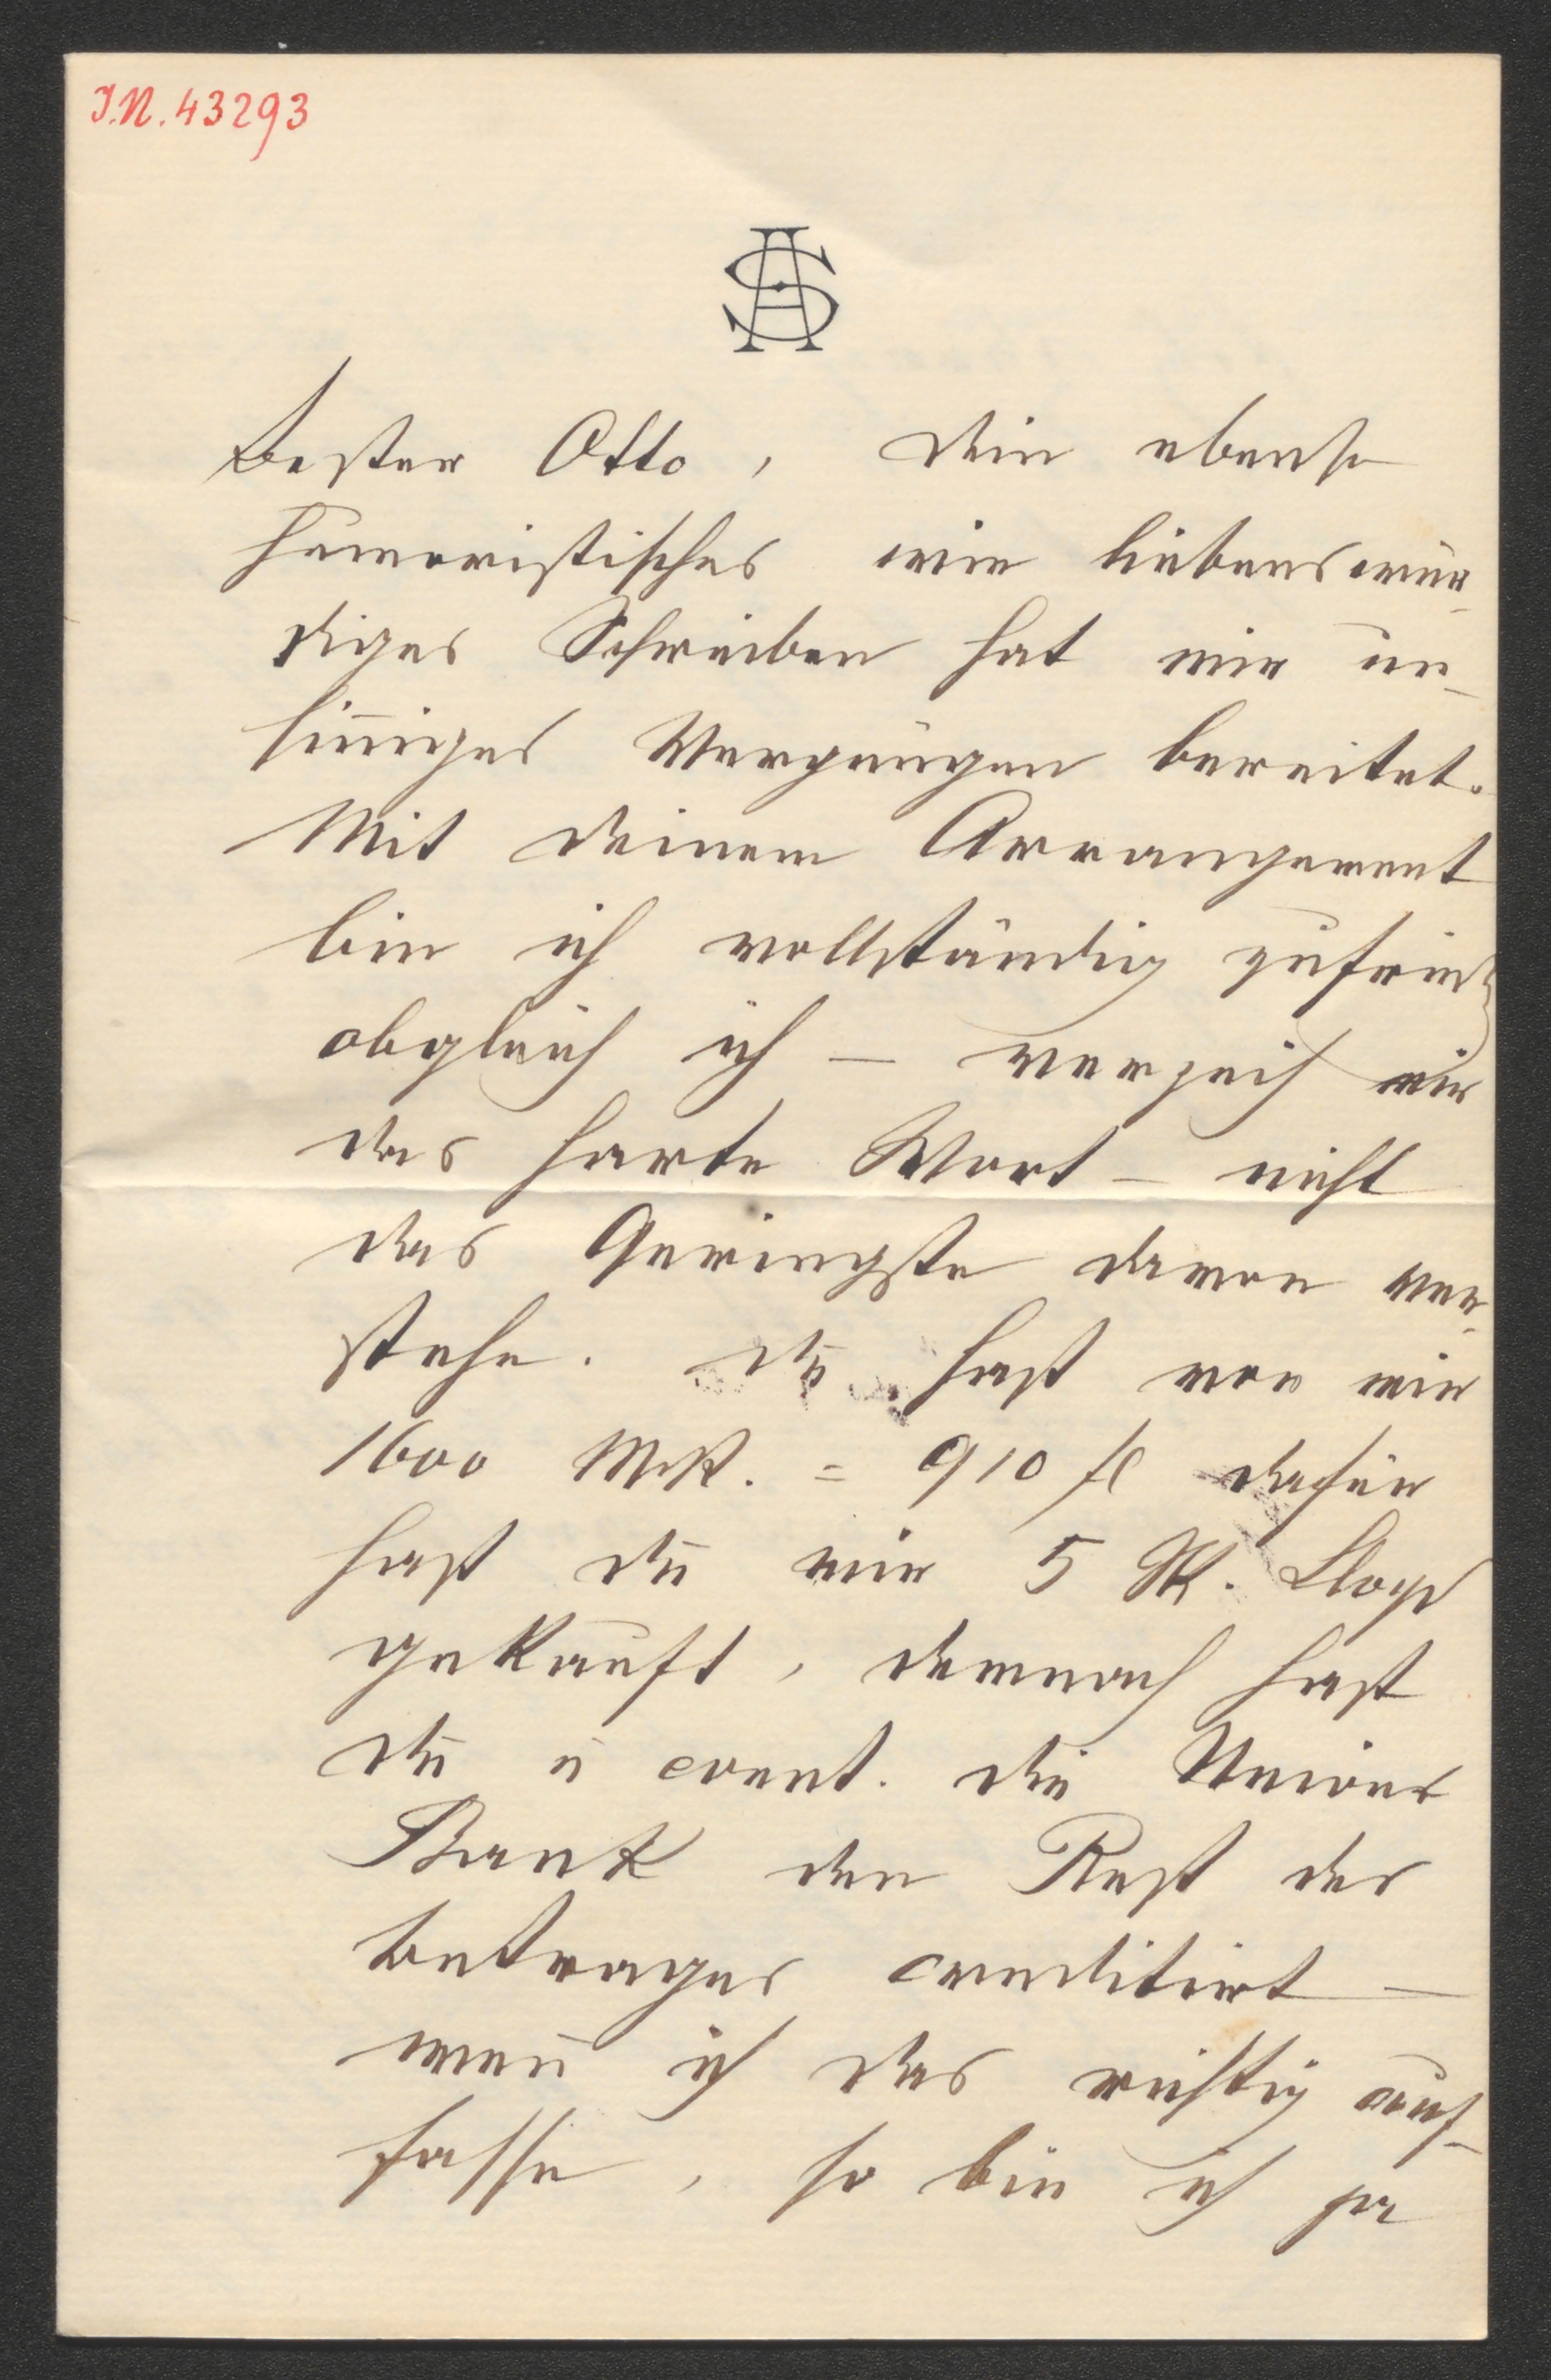 I.N. 43293
AS
Bester Otto, Dein ebenso
humoristisches wie liebenswür
diges Schreiben hat mir un-
sin̄iges Vergnügen bereitet.
Mit Deinem Arrangement
bin ich vollständig zufried
obgleich ich – verzeih mir
das harte Wort – nicht
das Geringste davon ver-
stehe. Du hast von mir
1600 Mk. = 910 fl dafür
hast du mir 5 St. Lloyd
gekauft, demnach hast
du u event. die Union
Bank den Rest des
Betrages creditirt –
wen̄ ich das richtig auf-
fasse, so bin ich ja